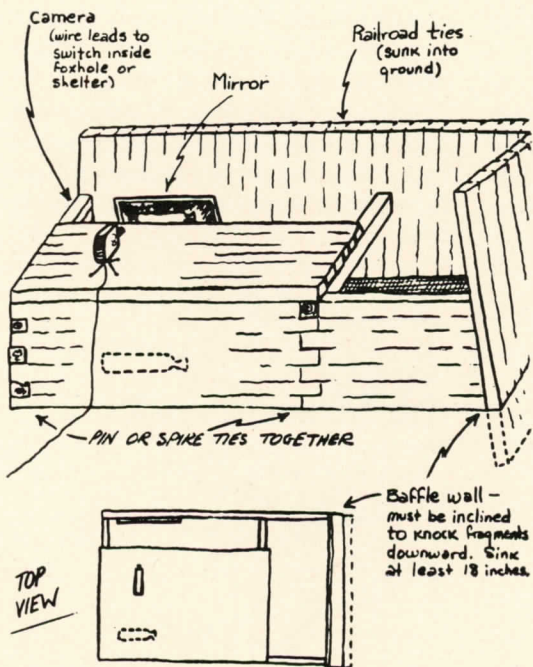 Camera
(wire leads to
switch inside
foxhole or
shelter)
Mirror
Railroad ties
(sunk into
ground)
PIN OR SPIKE TIES TOGETHER
Baffle wall –
must be inclined
to knock fragments
downward. Sink
at least 18 inches.
TOP
VIEW